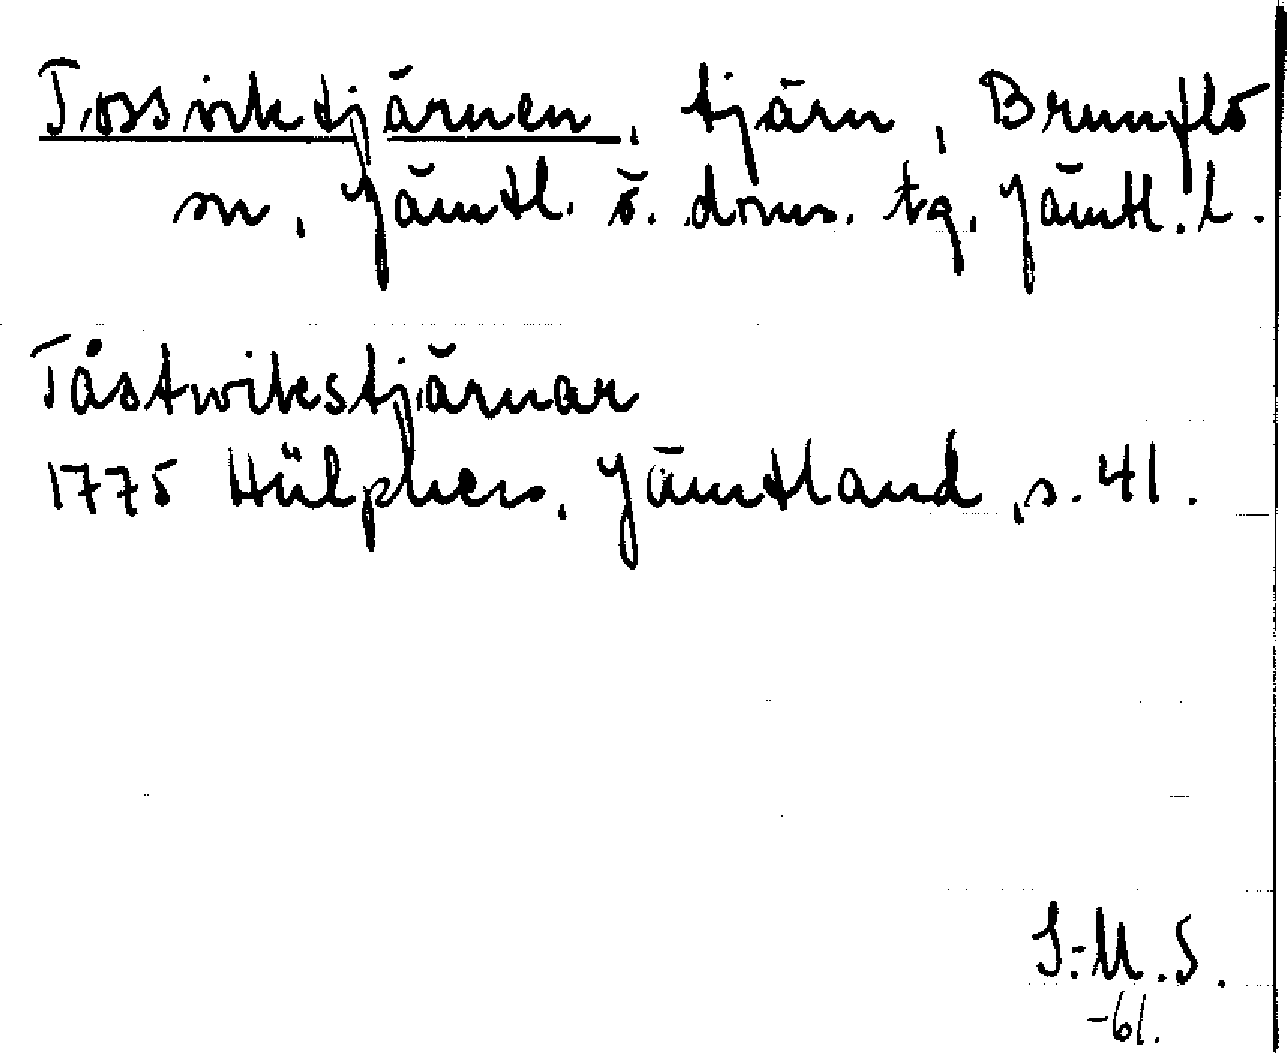 Tossviktjärnen, tjärn, Brunflo
sn, Jämtl. ö. doms. tg. Jämtl. l.
Tåstwikstjärnar
1775 Hülphers, Jämtland, s. 41.
I.-M. S.
-61.